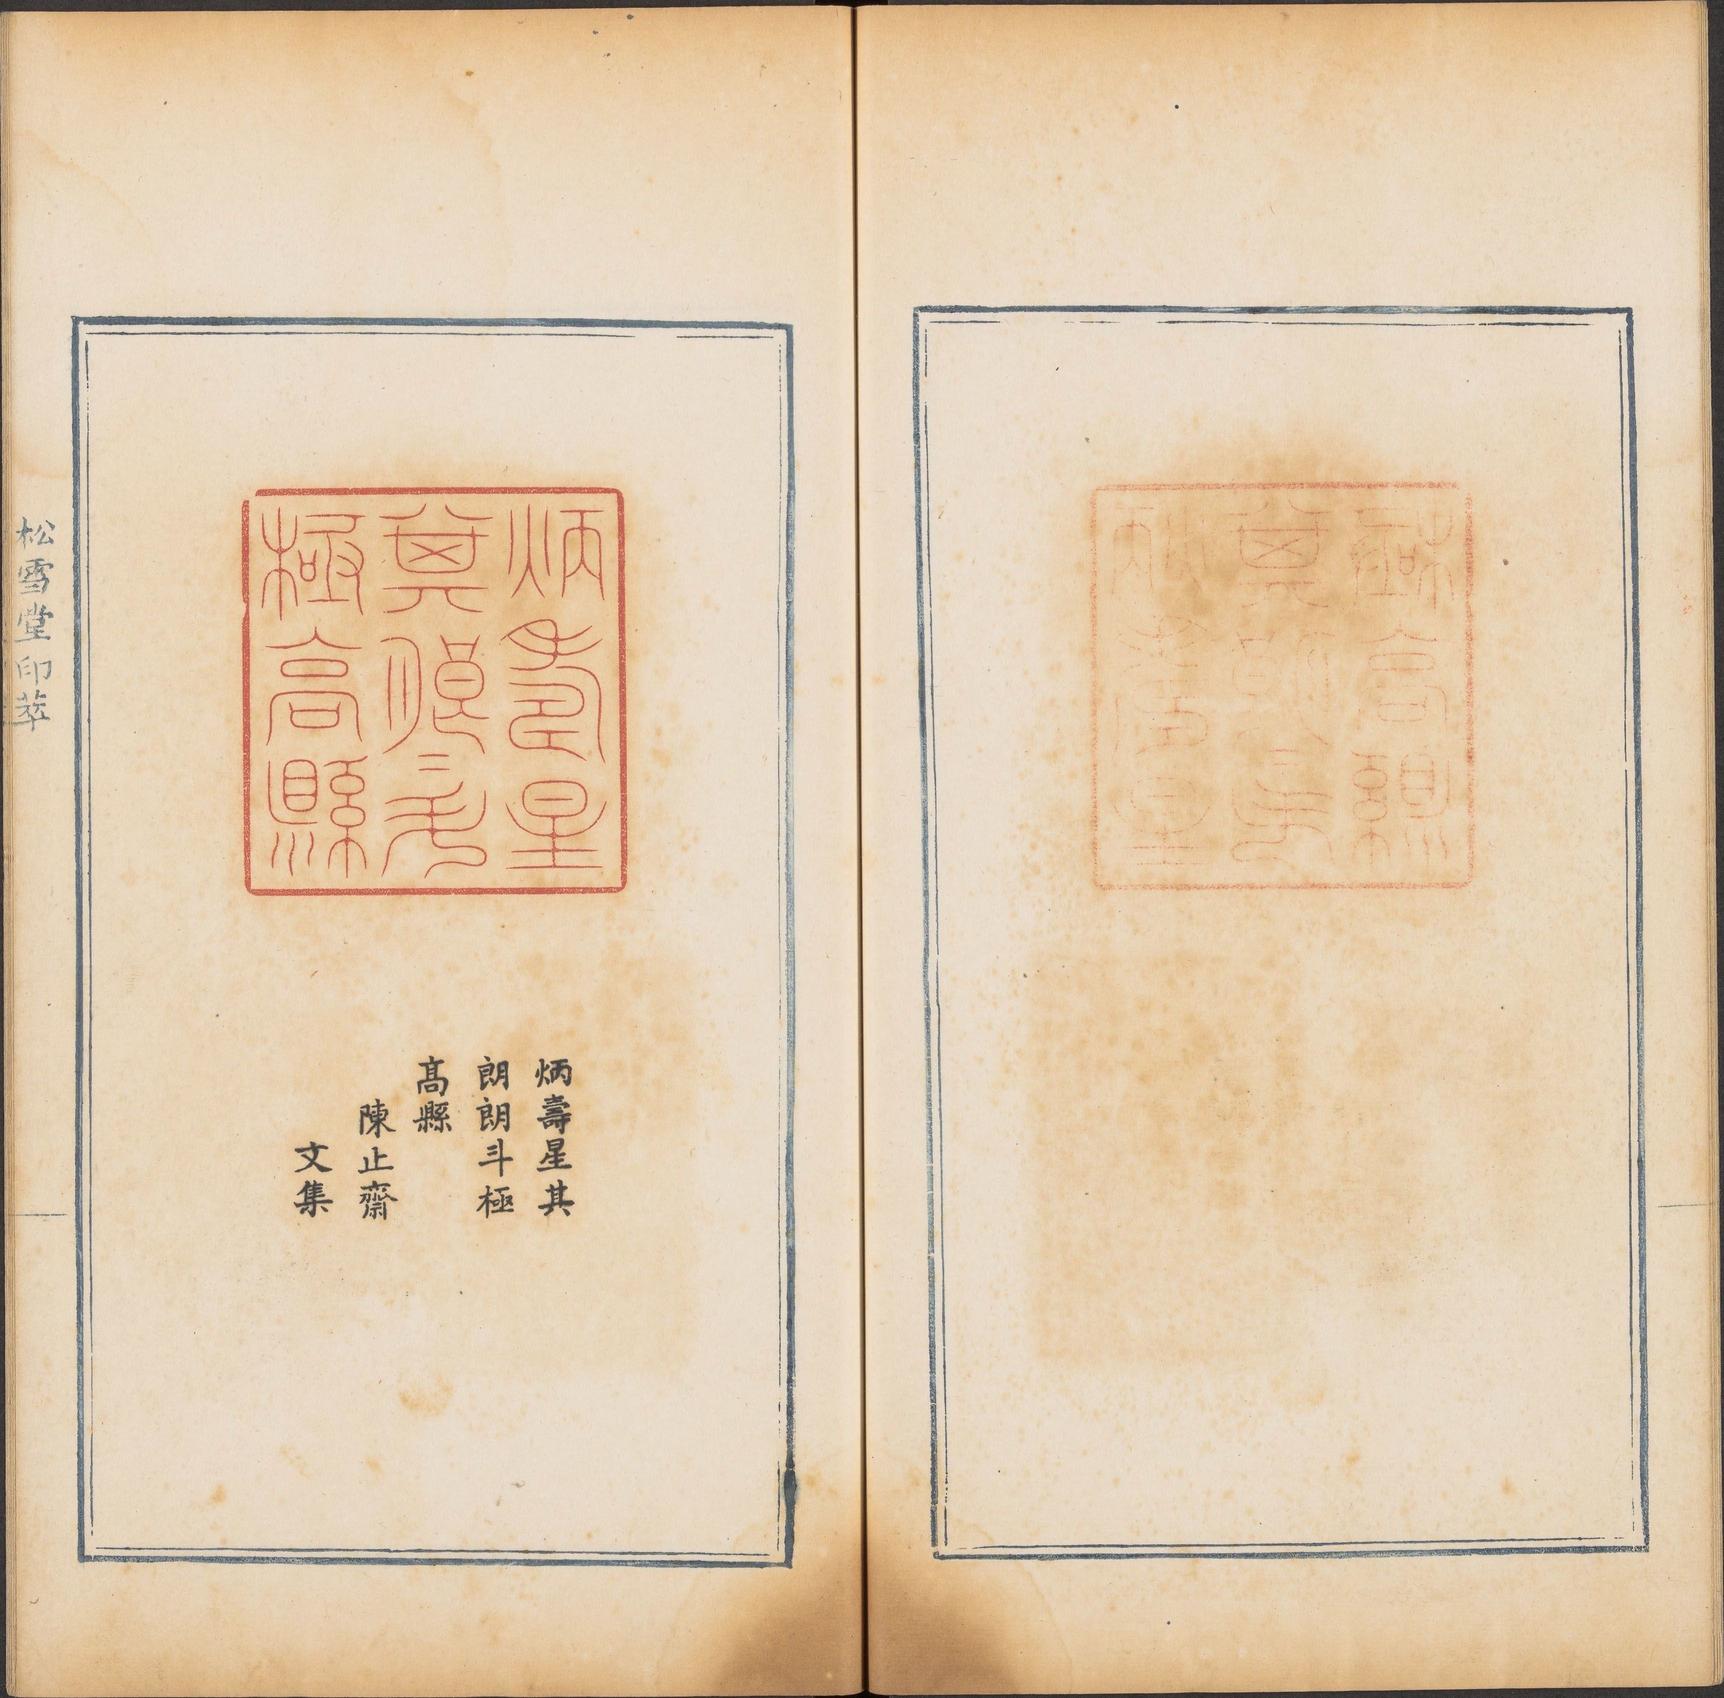 炳壽星
其朗二斗
極高縣
炳壽星其
朗朗斗極
髙縣
陳止齋
文集
松雪堂印萃